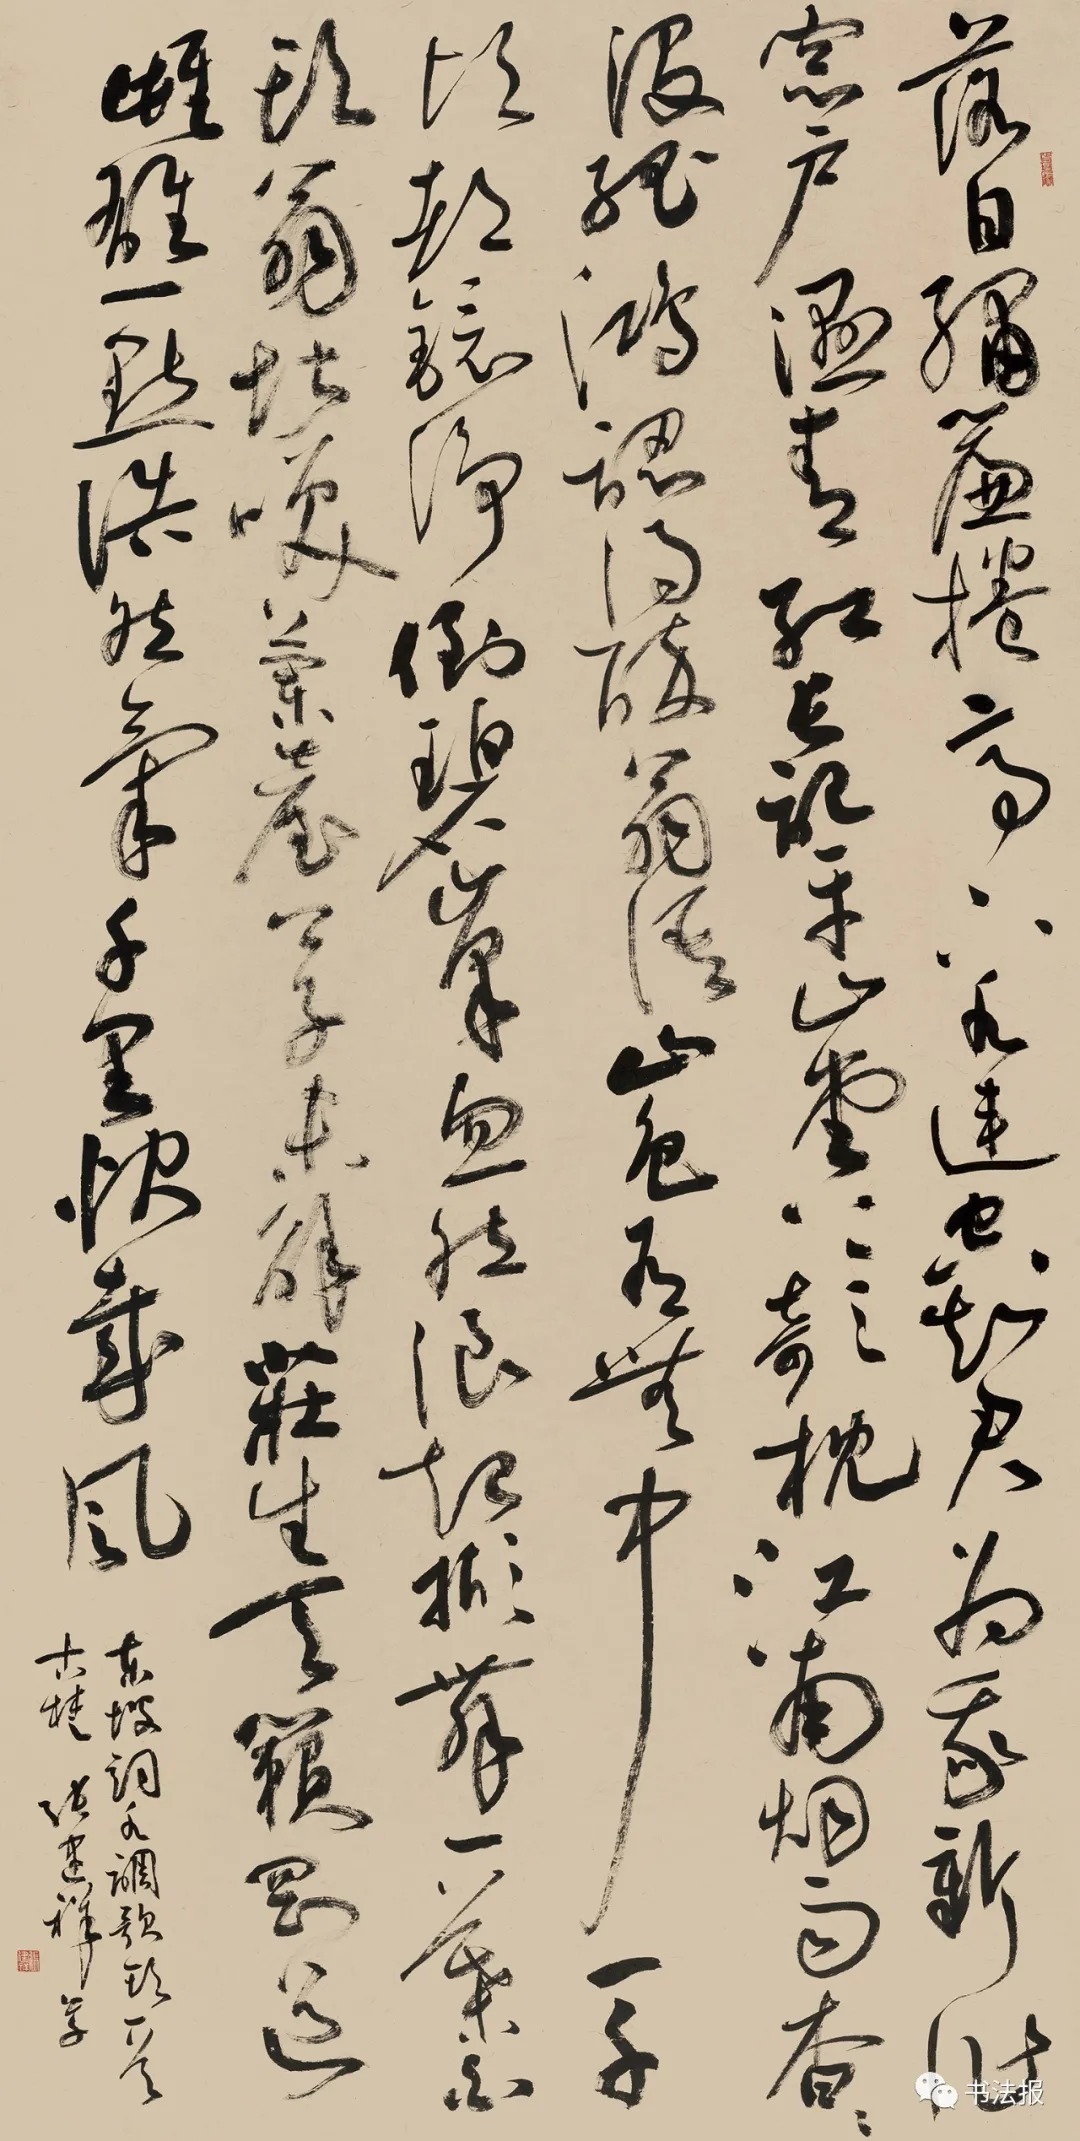 落日繡簾捲亭下水連空知君為我新作
窗户濕青紅長記平山堂上欹枕江南烟雨杳杳
没孤鴻認得醉翁語山色有無中一千
頃都鏡淨倒碧峯忽然浪起掀舞一葉白
頭翁堪咲蘭臺公子未解莊生天籟剛道
雌雄一點浩然氣千里快哉風
東坡詞水調歌頭一首
古楚 張建祥草
书法报